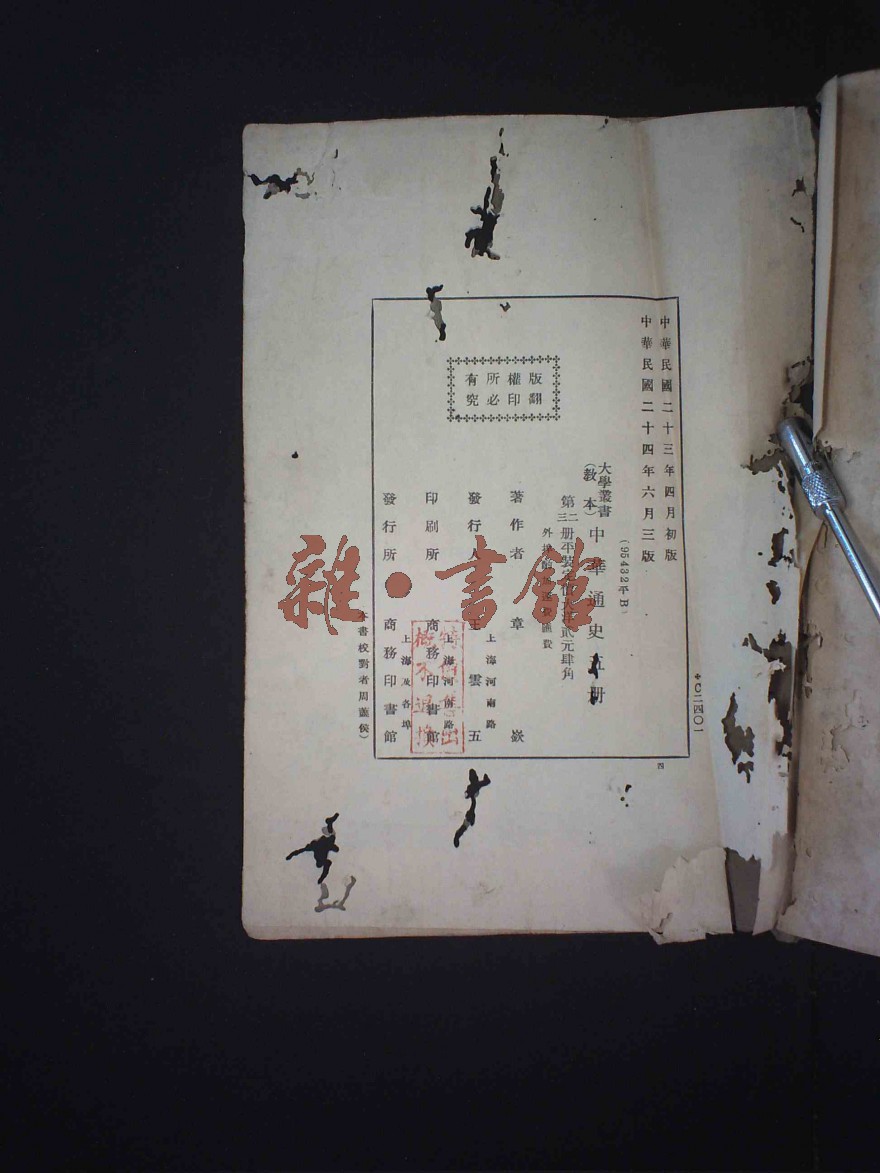 中華民國二十三年四月初版
中華民國二十四年六月三版
(95432平B)
大學叢書
(教本)
中華通史五册
第二三册平裝定價大洋貳元肆角
外埠酌加運費匯費
版權所有
翻印必究
著作者 章嶔
發行人 王雲五
上海河南路
印刷所 商務印書館
上海河南路
發行所 商務印書館
上海及各埠
本書校對者周蓮侯)
四
雜·書館
概不退換